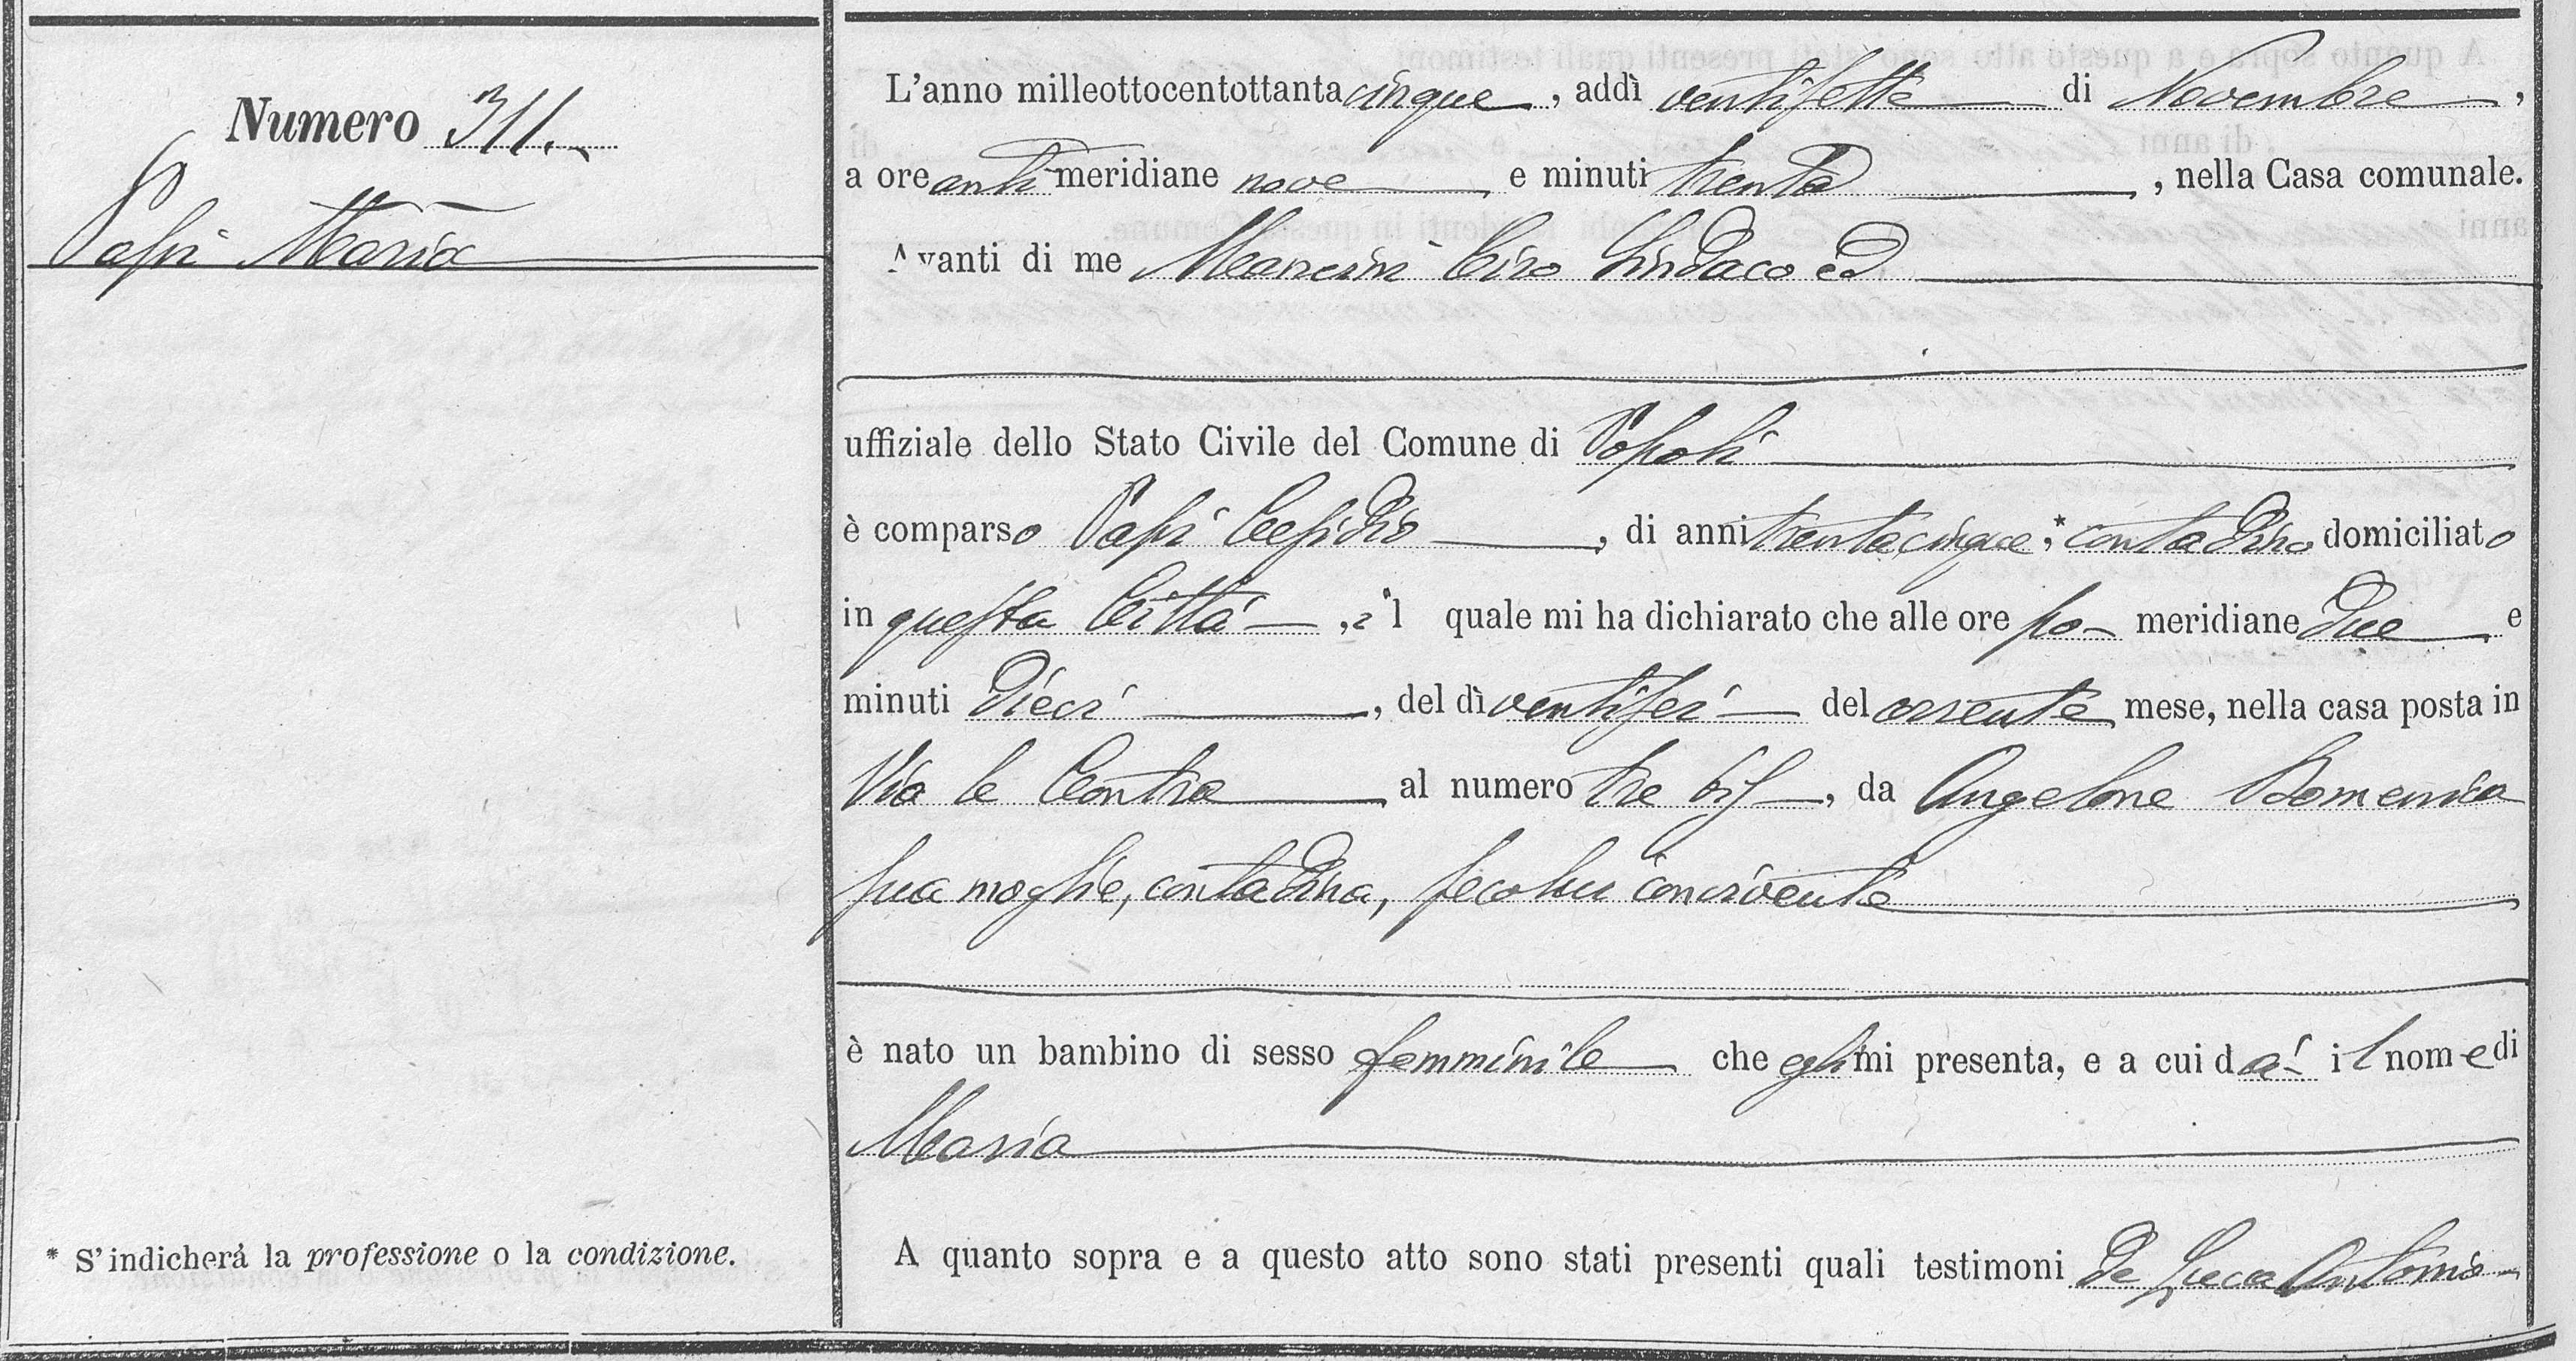 Numero 311.
Papi Maria
* S'indicherà la professione o la condizione.
L'anno milleottocentottantacinque, addì ventisette di Novembre,
a ore anti meridiane nove e minuti trenta, nella Casa comunale.
Avanti di me Mancini Ciro Sindaco ed
uffiziale dello Stato Civile del Comune di Popoli
è comparso Papi Cesidio, di anni trentacinque, * contadino domiciliato
in questa Città, il quale mi ha dichiarato che alle ore po meridiane due e
minuti dieci, del dì ventisei del corrente mese, nella casa posta in
Via le Contra al numero tre bis, da Angelone Domenica
sua moglie, contadina, seco lui convivente
è nato un bambino di sesso femminile che egli mi presenta, e a cui dà il nome di
Maria
A quanto sopra e a questo atto sono stati presenti quali testimoni de Luca Antonio